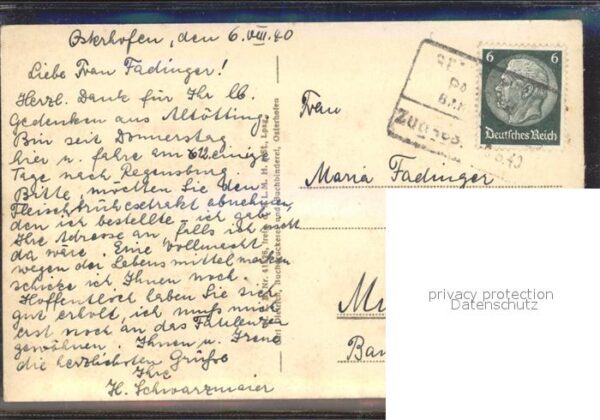 Osterhofen, den 6.VIII.40
Liebe Frau Fadinger!
Herzl. Dank für Ihr lb.
Gedenken aus Altötting.
Bin seit Donnerstag
hier u. fahre am 12. einige
Tage nach Regensburg.
Bitte möchten Sie den
Fleischbrühextrakt abnehmen,
den ich bestellte – ich gab
Ihre Adresse an, falls ich nicht
da wäre. Eine Vollmacht
wegen der Lebensmittelmarken
schicke ich Ihnen noch.
Hoffentlich haben Sie sich
gut erholt, ich muß mich
erst noch an das
gewöhnen. Ihnen u. Irene
die herzlichsten Grüße
Ihre
H. Schwarzmaier
Buchdruckerei und Buchbinderei, Osterhofen
6 6
Deutsches Reich
Frau
Maria Fadinger
privacy protection
Datenschutz